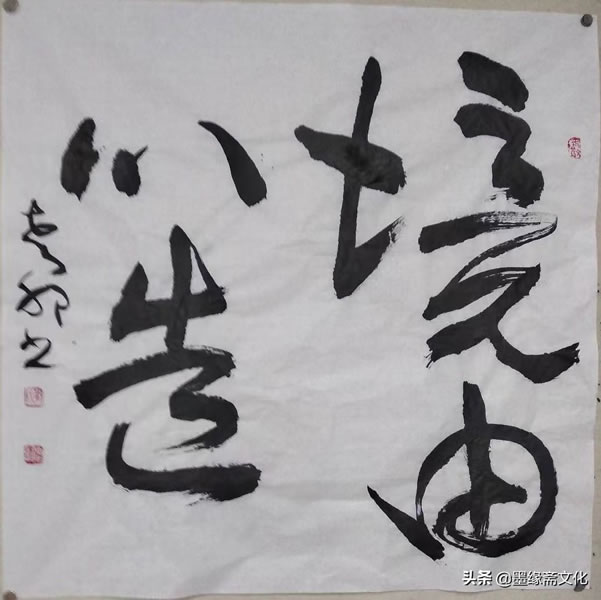 境由
心造
头条 @墨缘斋文化